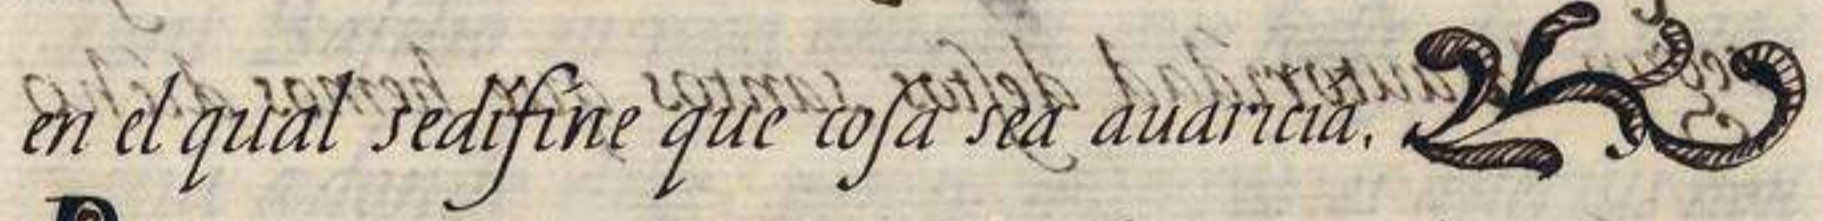 en el qual sedifine que coſa sea auaricia.